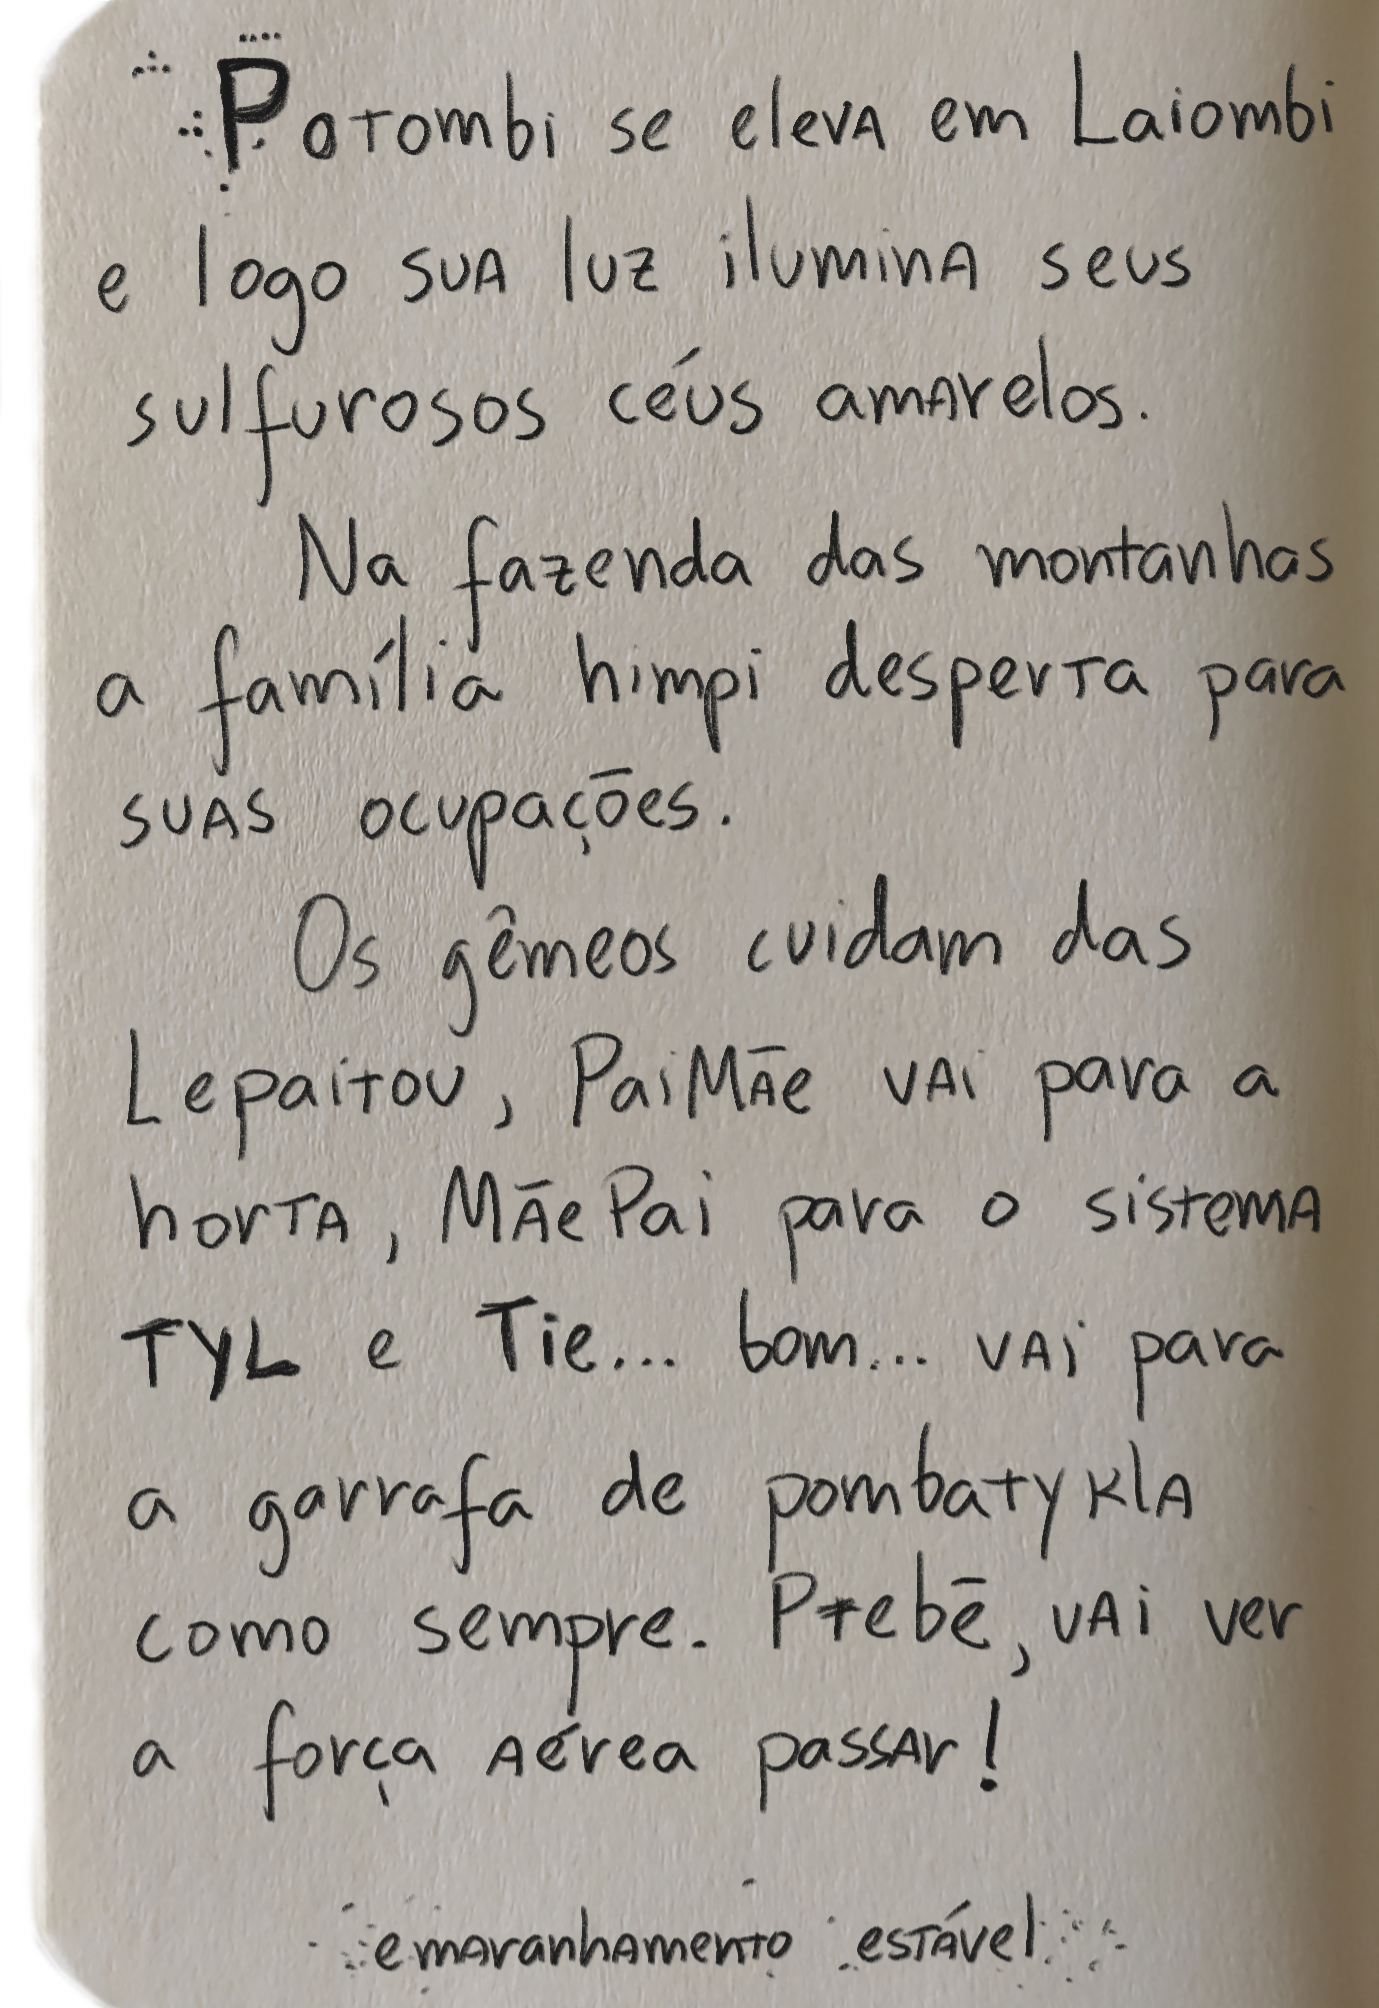 Potombi se eleva em Laiombi
e logo sua luz ilumina seus
sulfurosos céus amarelos.
Na fazenda das montanhas
a família himpi desperta para
suas ocupações.
Os gêmeos cuidam das
Lepaitou, PaiMãe vai para a
horta, MãePai para o sistema
TYL e Tie... bom... vai para
a garrafa de pombatykla
como sempre. Ptebē, vai ver
a força aérea passar!
emaranhamento estável